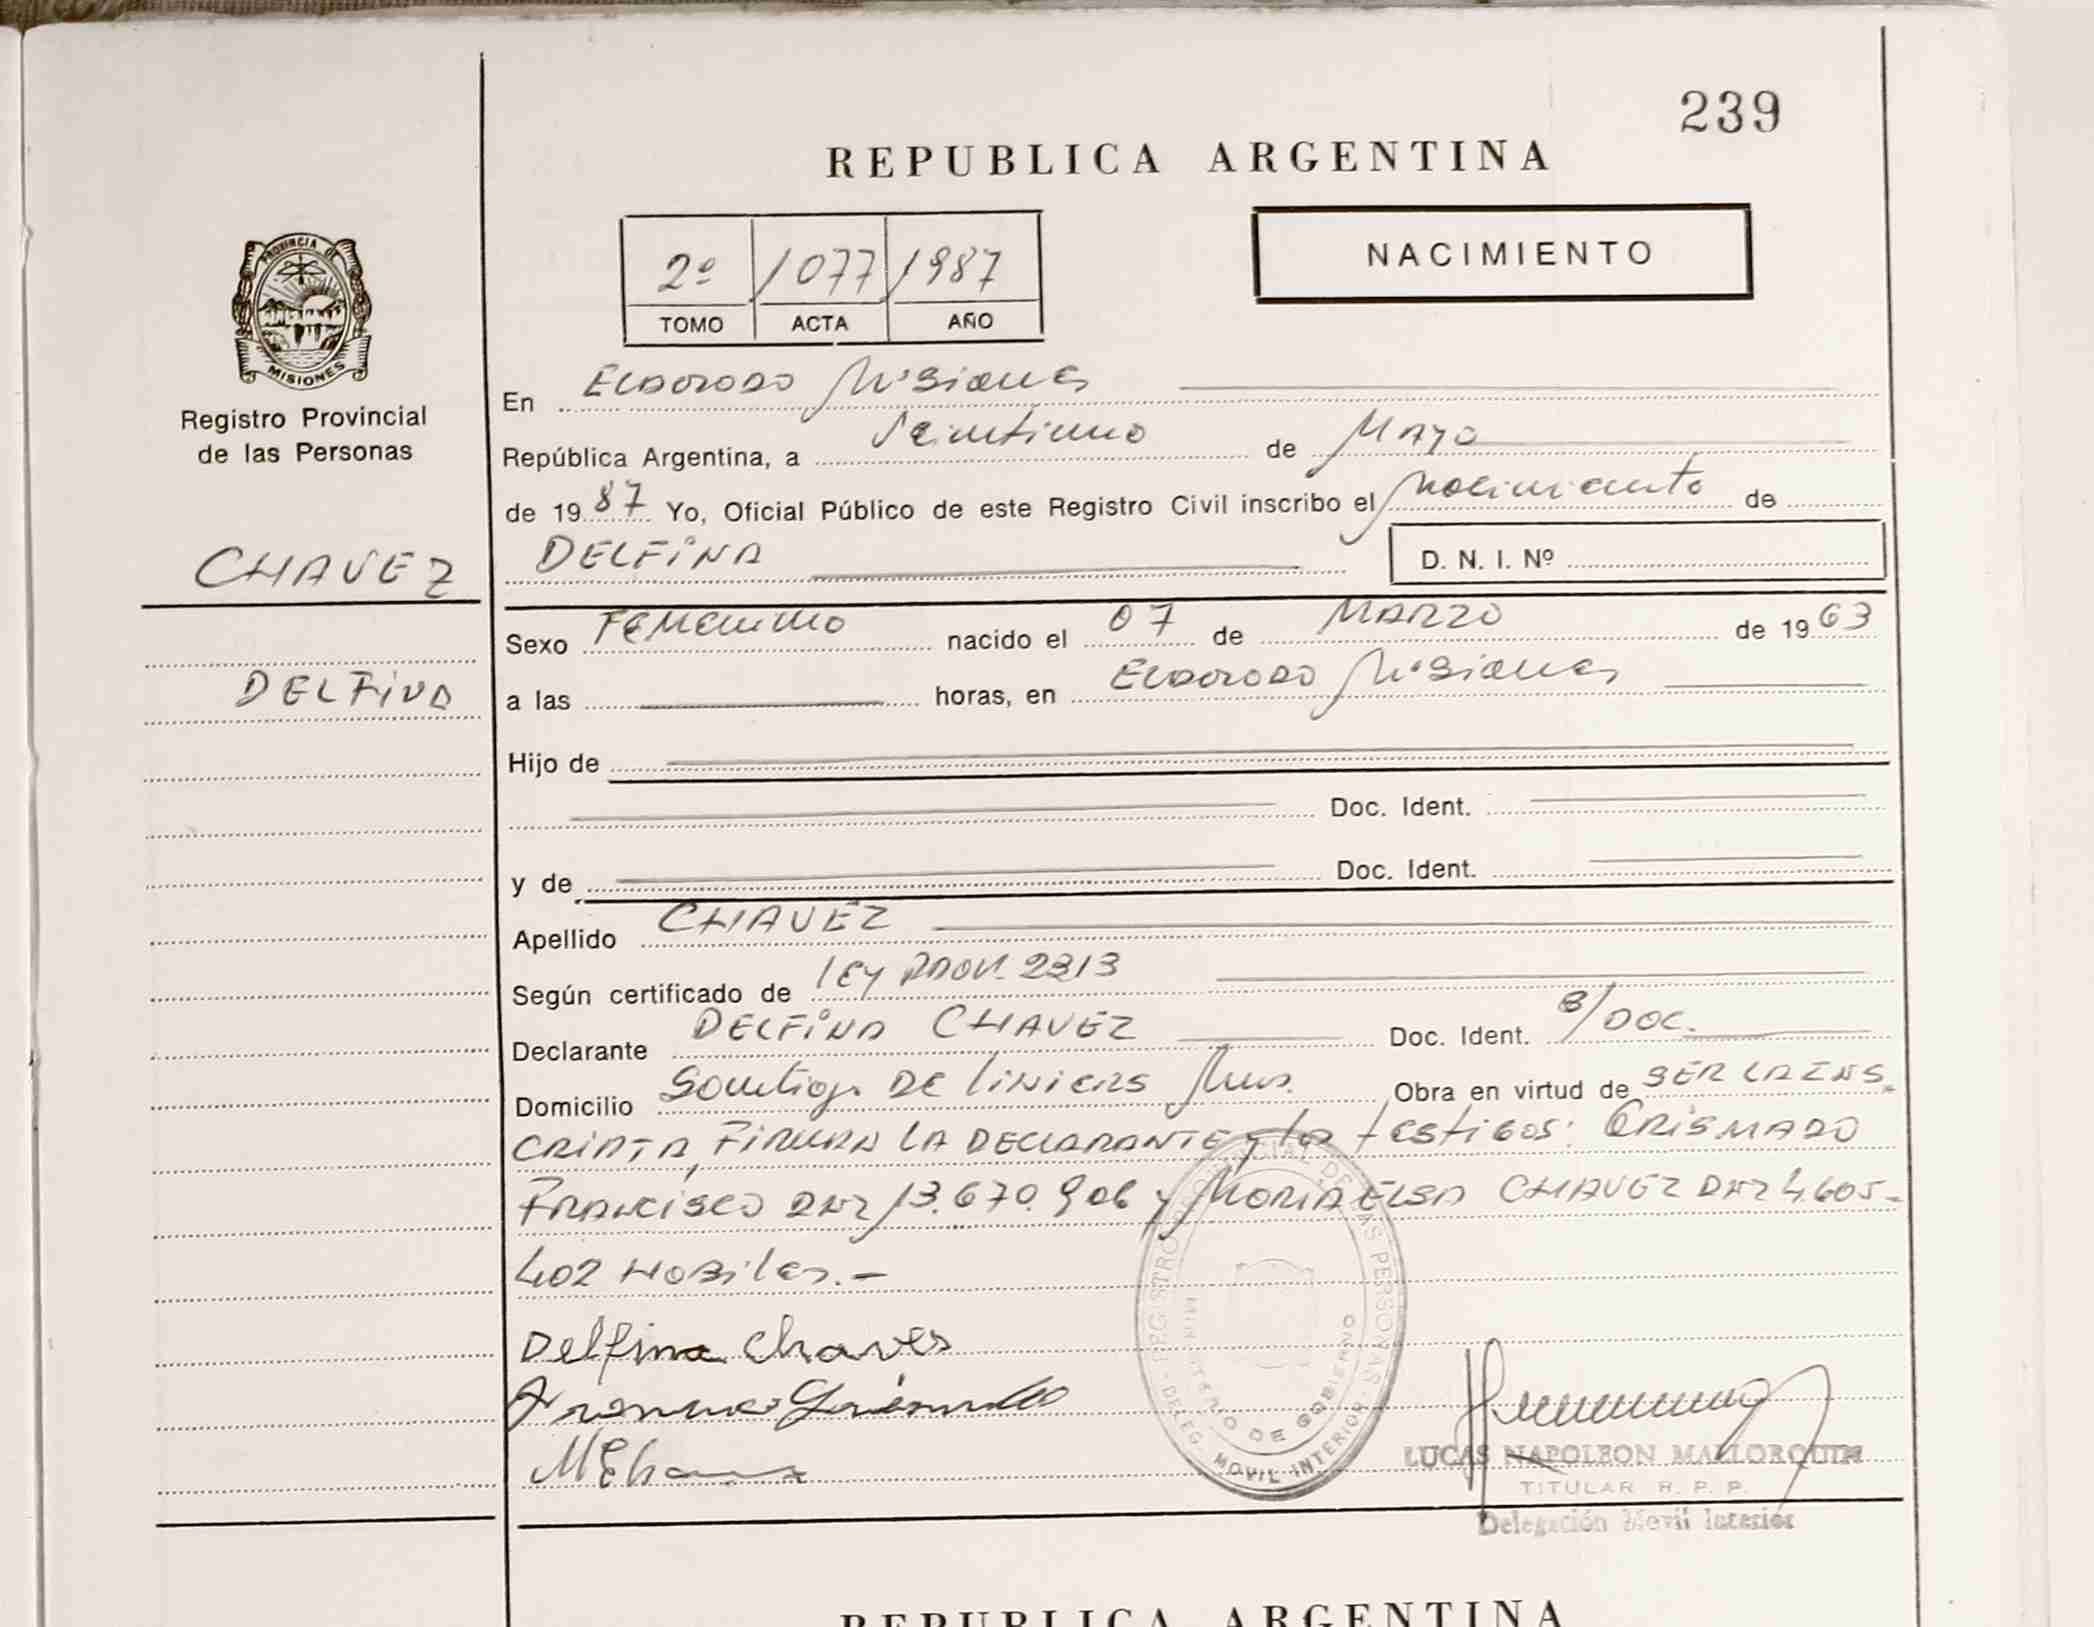 239
REPUBLICA ARGENTINA
2º 1077 1987
TOMO ACTA AÑO
NACIMIENTO
PROVINCIA DE
MISIONES
Registro Provincial
de las Personas
CHAVEZ
DELFINA
En ELDORADO Misiones
República Argentina, a Veintiuno de MAYO
de 1987 Yo, Oficial Público de este Registro Civil inscribo el Nacimiento de
DELFINA D. N. I. Nº
Sexo FEMENINO nacido el 07 de MARZO de 1963
a las horas, en ELDORADO Misiones
Hijo de
Doc. Ident.
y de Doc. Ident.
Apellido CHAVEZ
Según certificado de LEY PROV. 2313
Declarante DELFINA CHAVEZ Doc. Ident. S/DOC.
Domicilio Santiago DE LINIERS Mnes. Obra en virtud de SER LA INS
CRIPTA, FIRMAN LA DECLARANTE y los testigos: GRISMADO
FRANCISCO DNI 13.670.906 y MARIA ELSA CHAVEZ DNI 4.605-
402 HABILES.-
Delfina Chaves
LUCAS NAPOLEON MALLORQUIN
TITULAR R. P. P.
Delegación Movil Interior
REGISTRO PROVINCIAL DE LAS PERSONAS
MINISTERIO DE GOBIERNO
DELEG. MOVIL INTERIOR
REPUBLICA ARGENTINA